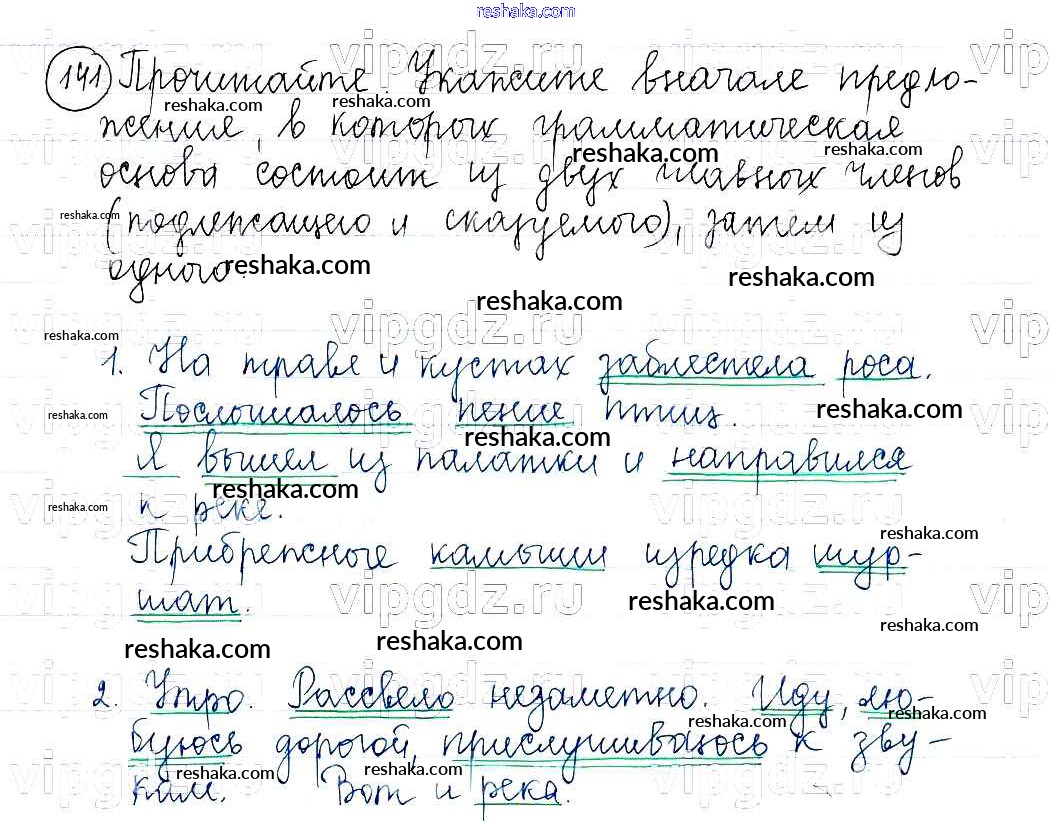 reshaka.com
141 Прочитайте. Укажите вначале предло-
жения, в которых грамматическая
основа состоит из двух главных членов
(подлежащего и сказуемого), затем из
одного.
1. На траве и кустах заблестела роса.
Послышалось пение птиц.
Я вышел из палатки и направился
к реке.
Прибрежные камыши изредка шур-
шат.
2. Утро. Рассвело незаметно. Иду, лю-
буюсь дорогой, прислушиваюсь к зву-
кам. Вот и река.